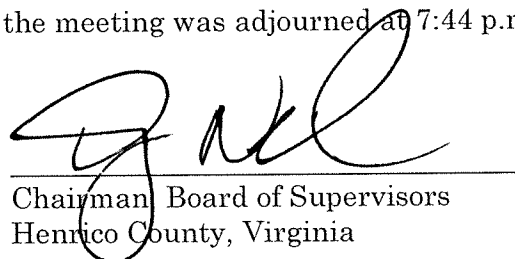 the meeting was adjourned at 7:44 p.m
Chairman, Board of Supervisors
Henrico County, Virginia